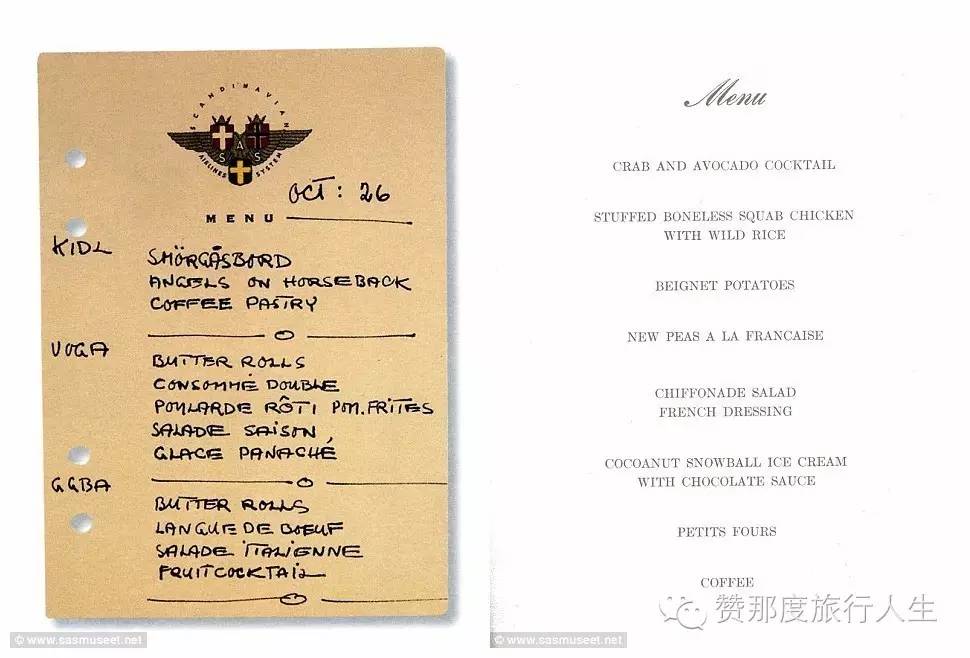 SCANDINAVIAN
SAS
AIRLINES SYSTEM
OCT: 26
MENU
KIDL
SMÖRGÅSBORD
ANGELS ON HORSEBACK
COFFEE PASTRY
VOGA
BUTTER ROLLS
CONSOMMÉ DOUBLE
POULARDE RÔTI POM. FRITES
SALADE SAISON
GLACE PANACHÉ
GGBA
BUTTER ROLLS
LANGUE DE BOEUF
SALADE ITALIENNE
FRUITCOCKTAIL
© www.sasmuseet.net
Menu
CRAB AND AVOCADO COCKTAIL
STUFFED BONELESS SQUAB CHICKEN
WITH WILD RICE
BEIGNET POTATOES
NEW PEAS A LA FRANCAISE
CHIFFONADE SALAD
FRENCH DRESSING
COCOANUT SNOWBALL ICE CREAM
WITH CHOCOLATE SAUCE
PETITS FOURS
COFFEE
赞那度旅行人生
© www.sasmuseet.net